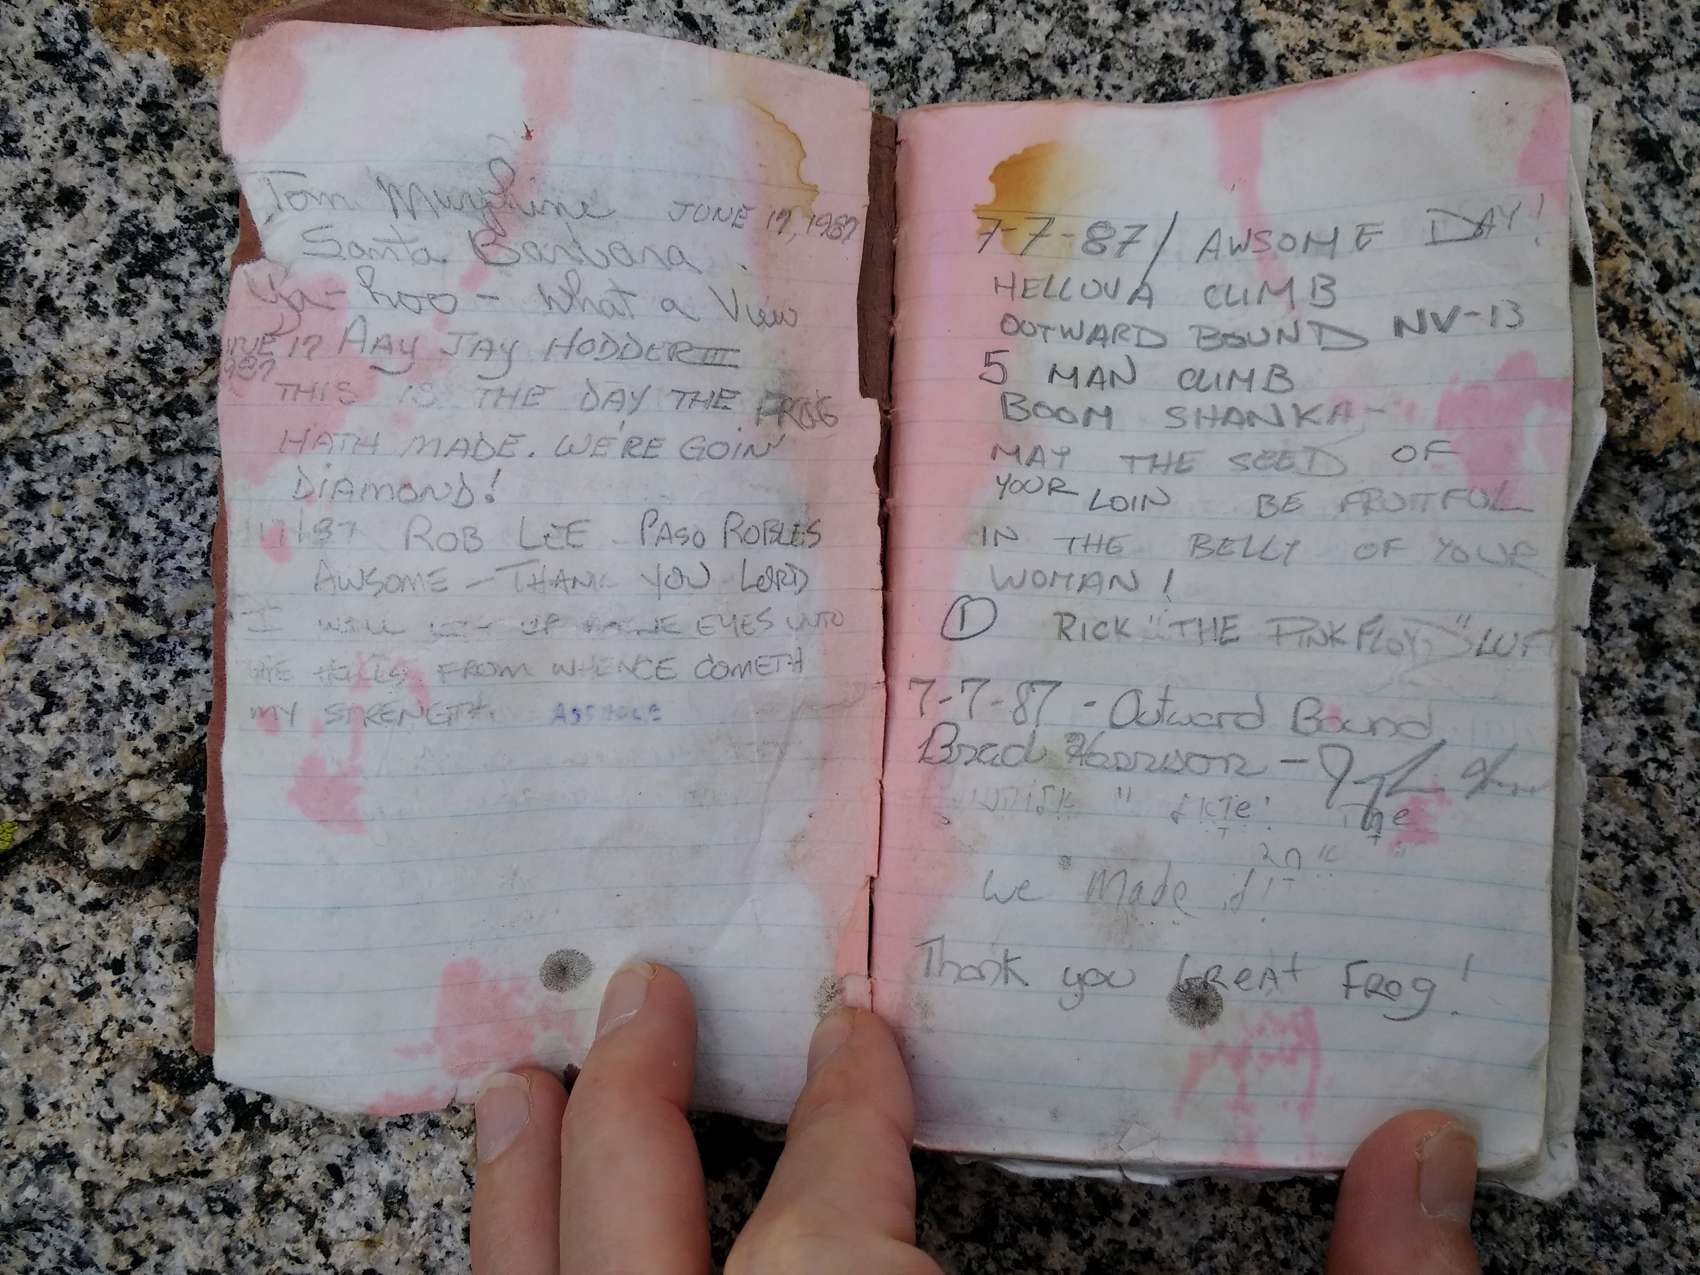 Tom JUNE 17, 1987
Santa Barbara
Ya-hoo - What a View
JUNE 17 AAY JAY HODDER III
1987
THIS IS THE DAY THE FROG
HATH MADE. WE'RE GOIN'
DIAMOND!
ROB LEE PASO ROBLES
AWSOME - THANK YOU LORD
I WILL UP EYES UNTO
THE HILLS FROM WHENCE COMETH
MY STRENGTH. ASSHOLE
7-7-87 / AWSOME DAY!
HELLUVA CLIMB
OUTWARD BOUND NV-13
5 MAN CLIMB
BOOM SHANKA-
MAY THE SEED OF
YOUR LOIN BE FRUTFUL
IN THE BELLY OF YOUR
WOMAN!
1 RICK "THE PINK FLOYD"
7-7-87 - Outward Bound
Brad Harrison -
We Made it!
Thank you GREAt FROg!